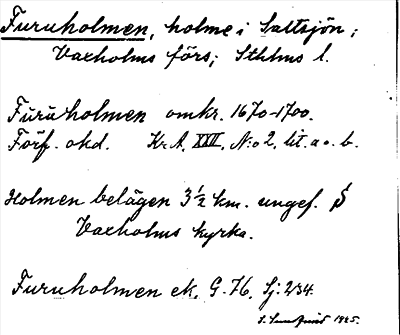 Furuholmen, holme i Saltsjön;
Vaxholms förs; Sthlms l.
Furuholmen omkr. 1670-1700.
Förf. okd. Kr. A. XXII, N:o 2, lit. a o. b.
Holmen belägen 3 1/2 km. ungef. S
Vaxholms kyrka.
Furuholmen ek. G. 76, Sj: 234.
1945.